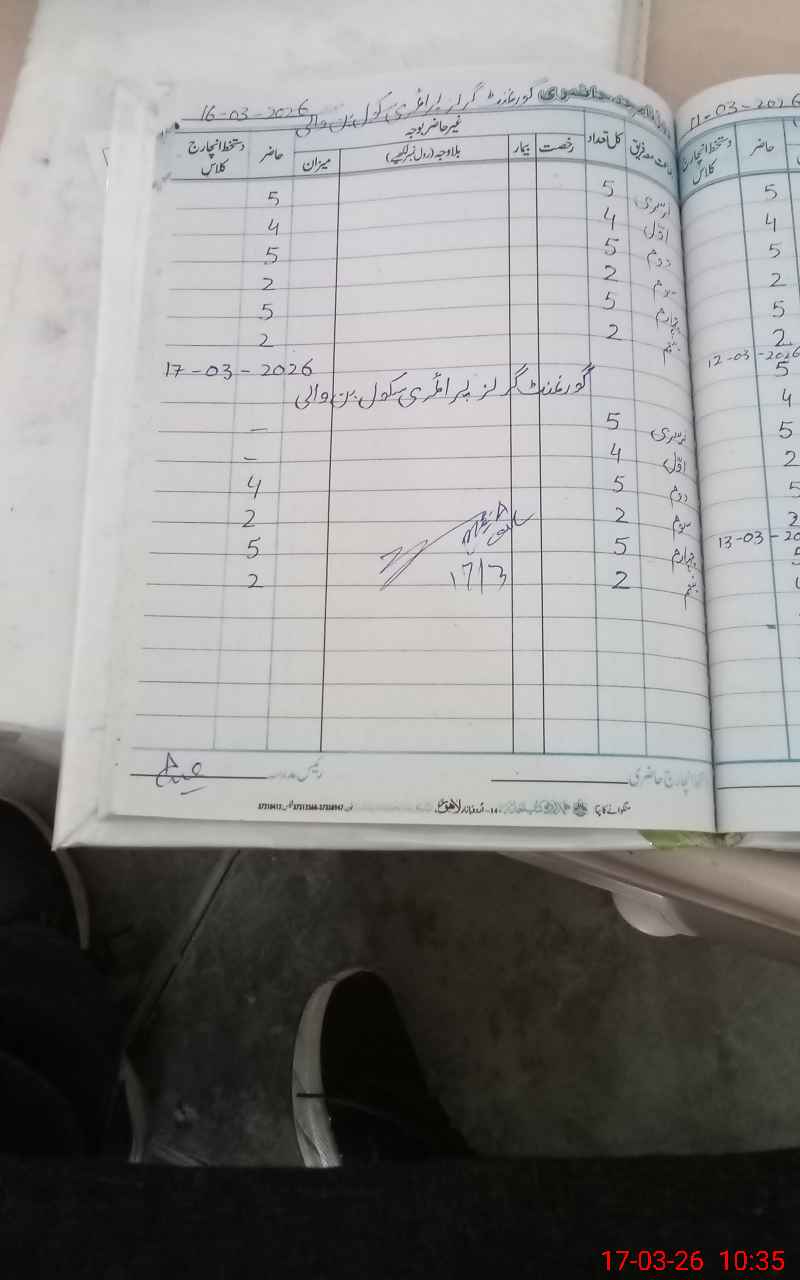 گورنمنٹ گرلز پرائمری سکول بن والی 16-03-2026
جماعت معہ فریق کل تعداد رخصت بیمار غیر حاضر بوجہ حاضر دستخط انچارج کلاس
بلاوجہ (رول نمبر لکھیے) میزان
نرسری 5 5
اوّل 4 4
دوم 5 5
سوم 2 2
چہارم 5 5
پنجم 2 2
17-03-2026
گورنمنٹ گرلز پرائمری سکول بن والی
نرسری 5 -
اوّل 4 -
دوم 5 4
سوم 2 2
چہارم 5 5
پنجم 2 2
17/3
انچارج حاضری
رئیس مدرسہ
11-03-2026
حاضر دستخط انچارج کلاس
5
4
5
2
5
2
12-03-2026
5
4
5
2
5
2
13-03-20
5
17-03-26 10:35